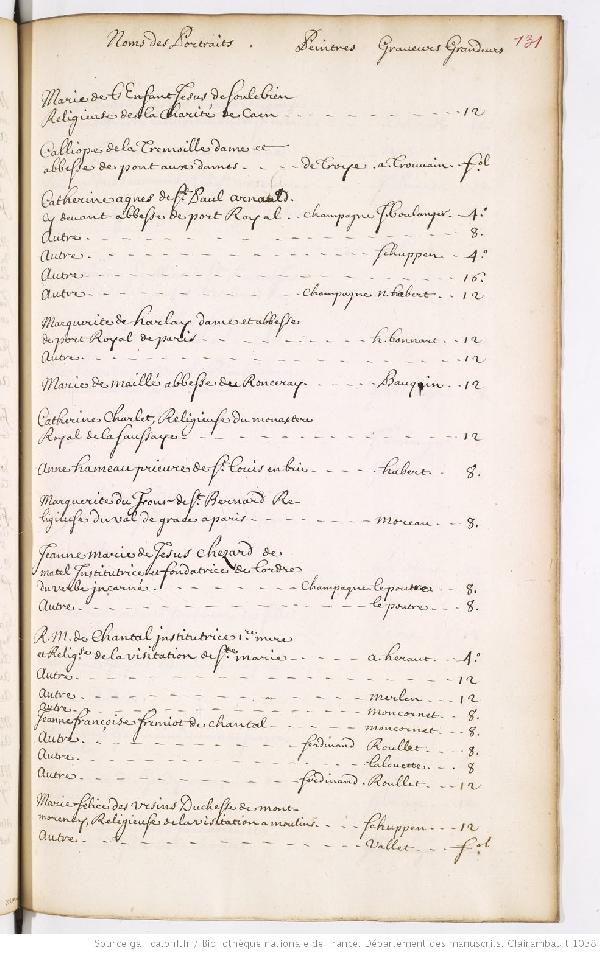 Noms des Portraits . Peintres Graveurs Grandeurs 131
Marie de l'Enfant Jesus de soulebien
Religieuse de la Charité de Caen 12
Calliope de la Tremoille dame et
abbesse de pont aux dames de Troye a Trouvain fol
Catherine agnes de St Paul arnauld
cy devant abbesse de port Royal champagne J. Boulanger 4º
Autre 8.
Autre schuppen 4º
Autre 16º
Autre champagne n. habert 12
Marguerite de harlay dame et abbesse
de port Royal de paris h. bonnart 12
Autre 12
Marie de maillé abbesse de Ronceray Bauquin 12
Catherine Charlet, Religieuse du monastere
Royal de la saussaye 12
Anne hameau prieure de St Louis en brie habert 8.
Marguerite du de St Bernard Re-
ligieuse du val de grace a paris moreau 8.
Jeanne marie de Jesus chezard de
matel Institutrice et fondatrice de l'ordre
du verbe incarné champagne le poutre 8.
Autre le poutre 8.
R. M. de Chantal institutrice 1ere mere
et Religse de la visitation de Ste marie a. heraut 4º
Autre 12
Autre merlen 12
Autre moncornet 8.
Jeanne françoise fremiot de chantal moncornet 8.
Autre ferdinand Roullet 8.
Autre lalouette 8
Autre ferdinand Roullet 12
Marie felice des ursins Duchesse de mont-
morency, Religieuse de la visitation a moulins schuppen 12
Autre Vallet fol
Source gallica.bnf.fr / Bibliothèque nationale de France. Département des manuscrits. Clairambault 1038